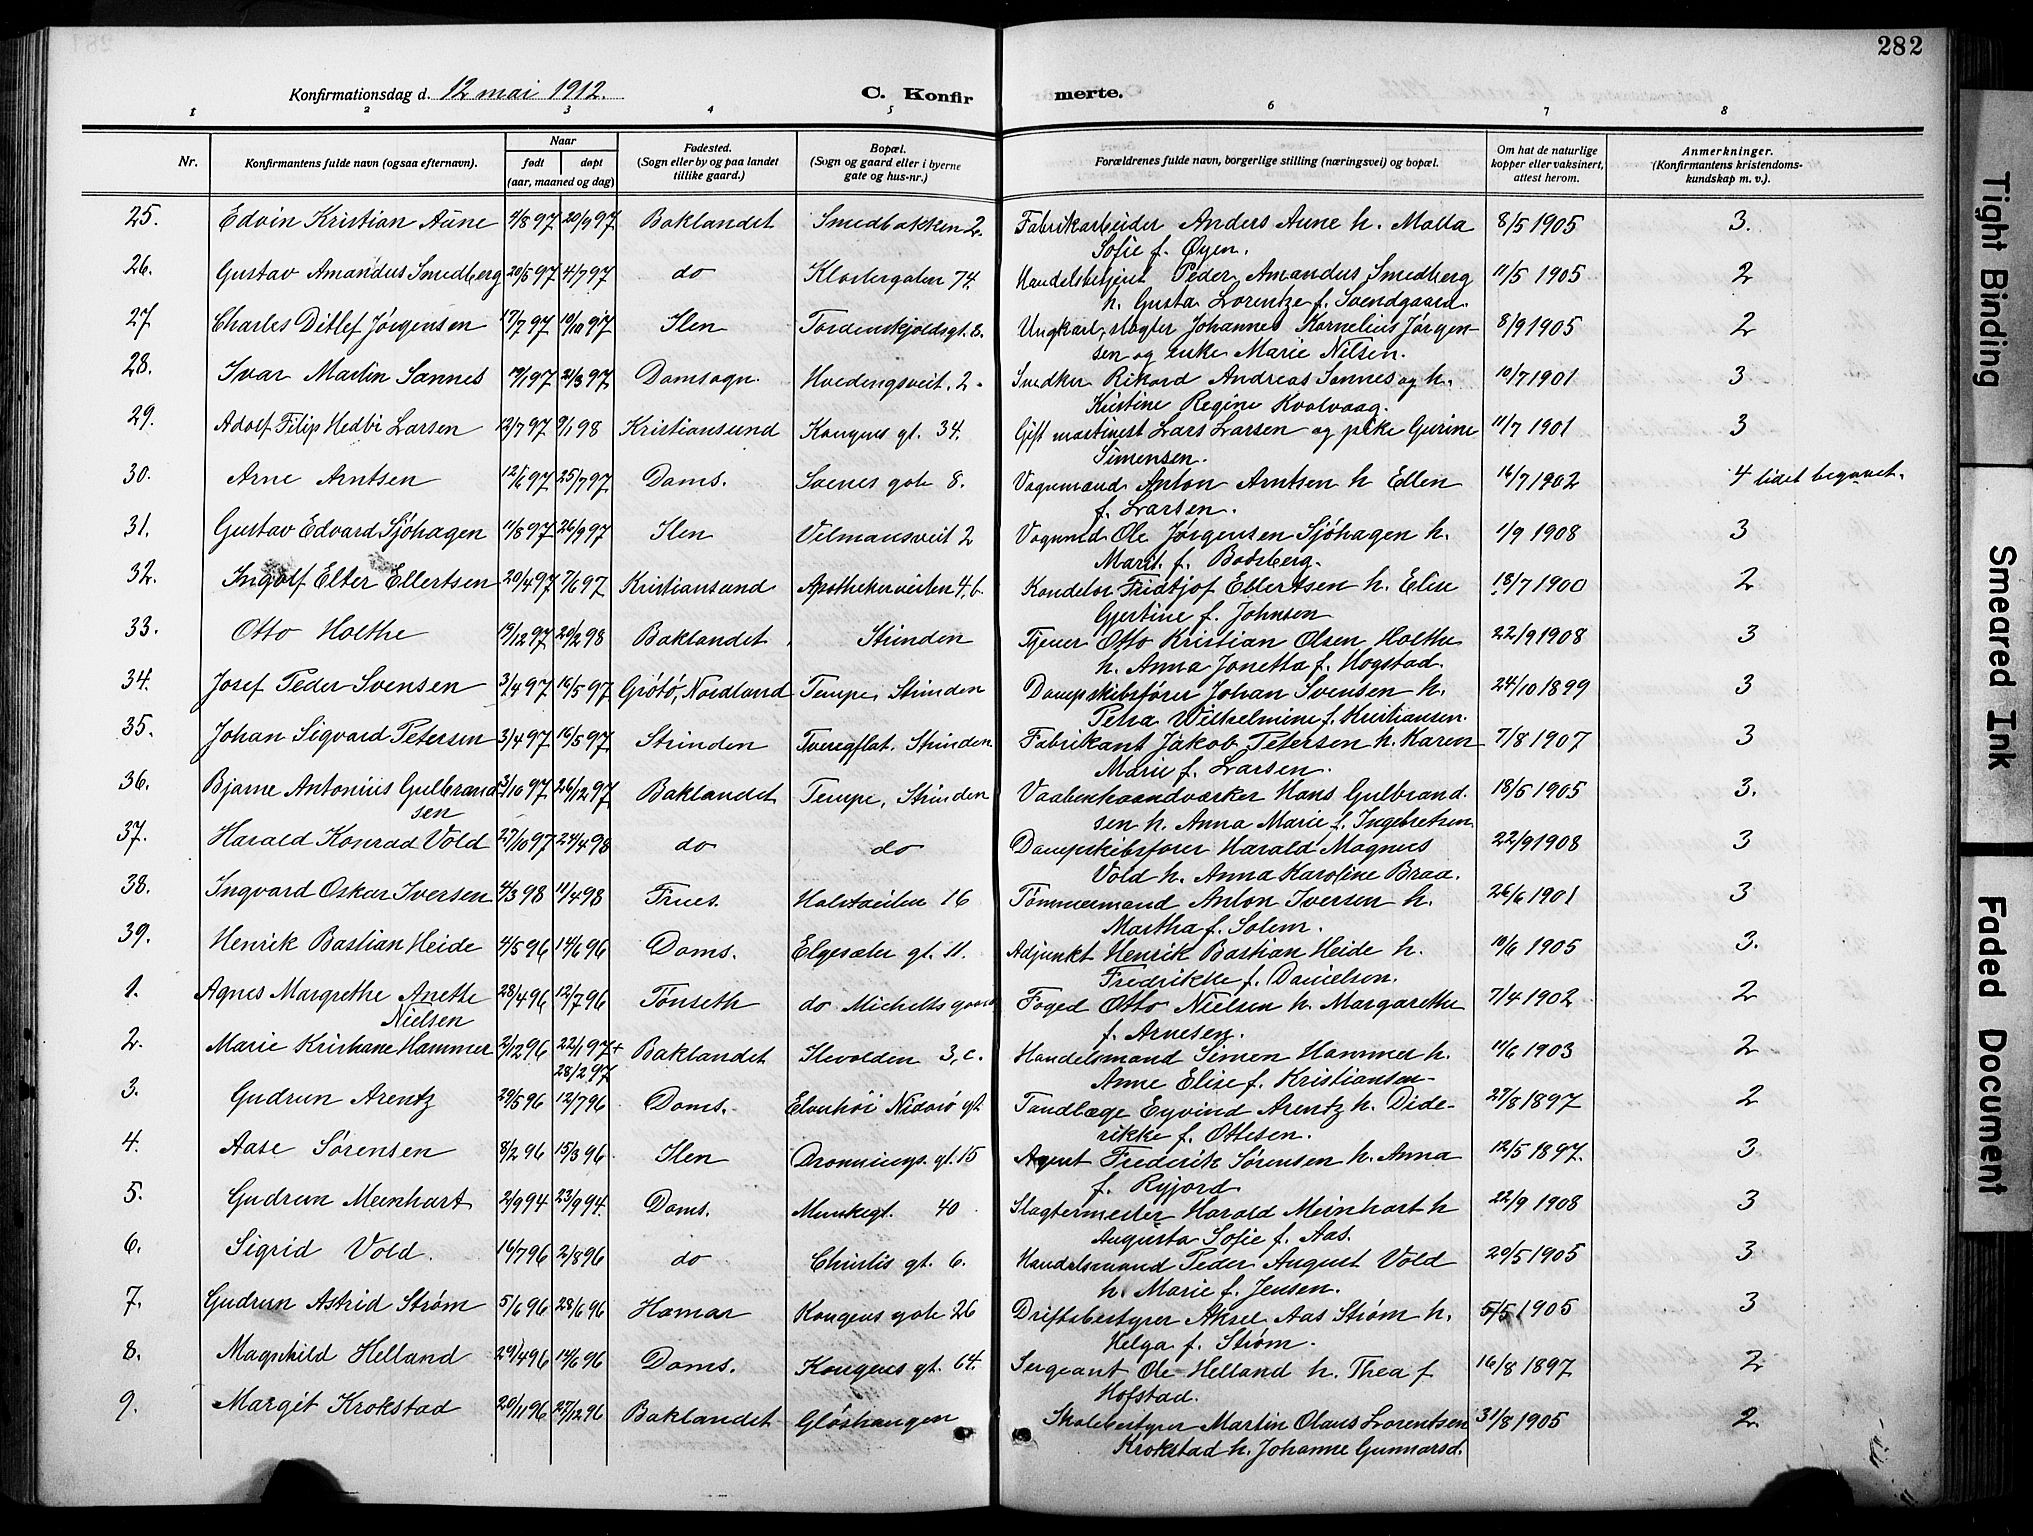 282
Konfirmationsdag d. 12 mai 1912.
C. Konfirmerte.
1 2 3 4 5 6 7 8
Nr. | Konfirmantens fulde navn (ogsaa efternavn). | Naar født døpt (aar, maaned og dag) | Fødested. (Sogn eller by og paa landet tillike gaard.) | Bopæl. (Sogn og gaard eller i byerne gate og hus-nr.) | Forældrenes fulde navn, borgerlige stilling (næringsvei) og bopæl. | Om hat de naturlige kopper eller vaksinert, attest herom. | Anmerkninger. (Konfirmantens kristendomskundskap m. v.).
25. Edvin Kristian Aune 4/8 97 20/9 97 Baklandet Smedbakken 2. Fabrikarbeider Anders Aune h. Malla 8/5 1905 3.
Sofie f. Øyen.
26. Gustav Amandus Smedberg 20/5 97 4/7 97 do Klostergaten 74. Handelsbetjent Peder Amandus Smedberg 11/5 1905 2
h. Gusta Lorentze f. Svendgaard.
27. Charles Ditlef Jørgensen 17/7 97 10/10 97 Ilen Tordenskjoldsgt. 8. Ungkarl, slagter Johannes Kornelius Jørgen- 8/9 1905 2
sen og enke Marie Nilsen.
28. Ivar Martin Sannes 19/1 97 21/3 97 Domsogn. Hvedingsveit. 2. Snedker Rikard Andreas Sannes og h. 10/7 1901 3
Kristine Regine Kvalvaag.
29. Adolf Filip Hedbi Larsen 12/7 97 9/1 98 Kristiansund Kongens gt. 34. Gift maskinist Lars Larsen og pike Gurine 11/7 1901 3
Simensen.
30. Arne Arntsen 12/6 97 25/7 97 Doms. Svenes gate 8. Vognmand Anton Arntsen h Ellen 16/7 1902 4 lidet begavet.
f. Larsen.
31. Gustav Edvard Sjøhagen 11/8 97 26/9 97 Ilen Vilmansveit 2 Vognmd Ole Jørgensen Sjøhagen h. 1/9 1908 3
Marit f. Bodsberg.
32. Ingolf Elter Ellertsen 20/4 97 7/6 97 Kristiansund Apothekerveiten 4, b. Konditor Fridtjof Ellertsen h. Elise 18/7 1900 2
Gjertine f. Johnsen
33. Otto Holthe 19/12 97 20/2 98 Baklandet Strinden Tjener Otto Kristian Olsen Holthe 22/9 1908 3
h. Anna Jonetta f. Hogstad.
34. Josef Peder Svensen 3/4 97 16/5 97 Grøtø, Nordland Tempe, Strinden Dampskibsfører Johan Svensen h. 24/10 1899 3
Petra Wilhelmine f. Kristiansen.
35. Johan Sigvard Petersen 3/4 97 16/5 97 Strinden Tveregflat. Strinden Fabrikant Jakob Petersen h. Karen 7/8 1907 3
Marie f. Larsen.
36. Bjarne Antonius Gulbrand- 3/10 97 26/12 97 Baklandet Tempe, Strinden Vaabenhaandværker Hans Gulbrand- 18/5 1905 3.
sen sen h. Anna Marie f. Ingebretsen
37. Harald Konrad Vold 27/10 97 24/4 98 do do Dampskibsfører Harald Magnus 22/9 1908 3
Vold h. Anna Karoline Braa.
38. Ingvard Oskar Iversen 4/3 98 11/4 98 Frues. Halstveiten 16 Tømmermand Anton Iversen h. 26/6 1901 3
Martha f. Solem.
39. Henrik Bastian Heide 4/5 96 14/6 96 Doms. Elgesæter gt. 11. Adjunkt Henrik Bastian Heide h. 10/6 1905 3.
Fredrikke f. Danielsen.
1. Agnes Margrethe Anethe 28/4 96 12/7 96 Tønseth do Michelts gaard Foged Otto Nielsen h. Margarethe 7/4 1902 2
Nielsen f. Arnesen.
2. Marie Kristiane Hammer 2/12 96 22/1 97 + Baklandet Ilevolden 3, c. Handelsmand Simen Hammer h. 11/6 1903 2
28/2 97 Anne Elise f. Kristiansen-
3. Gudrun Arentz 29/5 96 12/7 96 Doms. Elvehøi Nidarø gt Tandlæge Eyvind Arentz h. Dide- 27/8 1897 2
rikke f. Ottesen.
4. Aase Sørensen 8/2 96 15/3 96 Ilen Dronningsgt. 15 Agent Frederik Sørensen h. Anna 12/5 1897. 3
f. Ryjord.
5. Gudrun Meinhart 2/9 94 23/9 94. Doms. Munkegt. 40 Slagtermester Harald Meinhart h 22/9 1908 3
Augusta Sofie f. Aas.
6. Sigrid Vold. 16/7 96 2/8 96 do Christis gt. 6. Handelsmand Peder August Vold 20/5 1905 3
h. Marie f. Jensen.
7. Gudrun Astrid Strøm 5/6 96 28/6 96 Hamar Kongens gate 26 Driftsbestyrer Aksel Aas Strøm h. 5/5 1905 3
Helga f. Strøm.
8. Magnhild Helland 29/4 96 14/6 96 Doms. Kongens gt. 64. Sergeant Ole Helland h. Thea f 16/8 1897 2
Hofstad.
9. Margit Krokstad 20/11 96 27/12 96 Baklandet Gløshaugen Skolebestyrer Martin Olaus Lorentsen 31/8 1905 2
Krokstad h. Johanne Gunnarsd.
Tight Binding
Smeared Ink
Faded Document